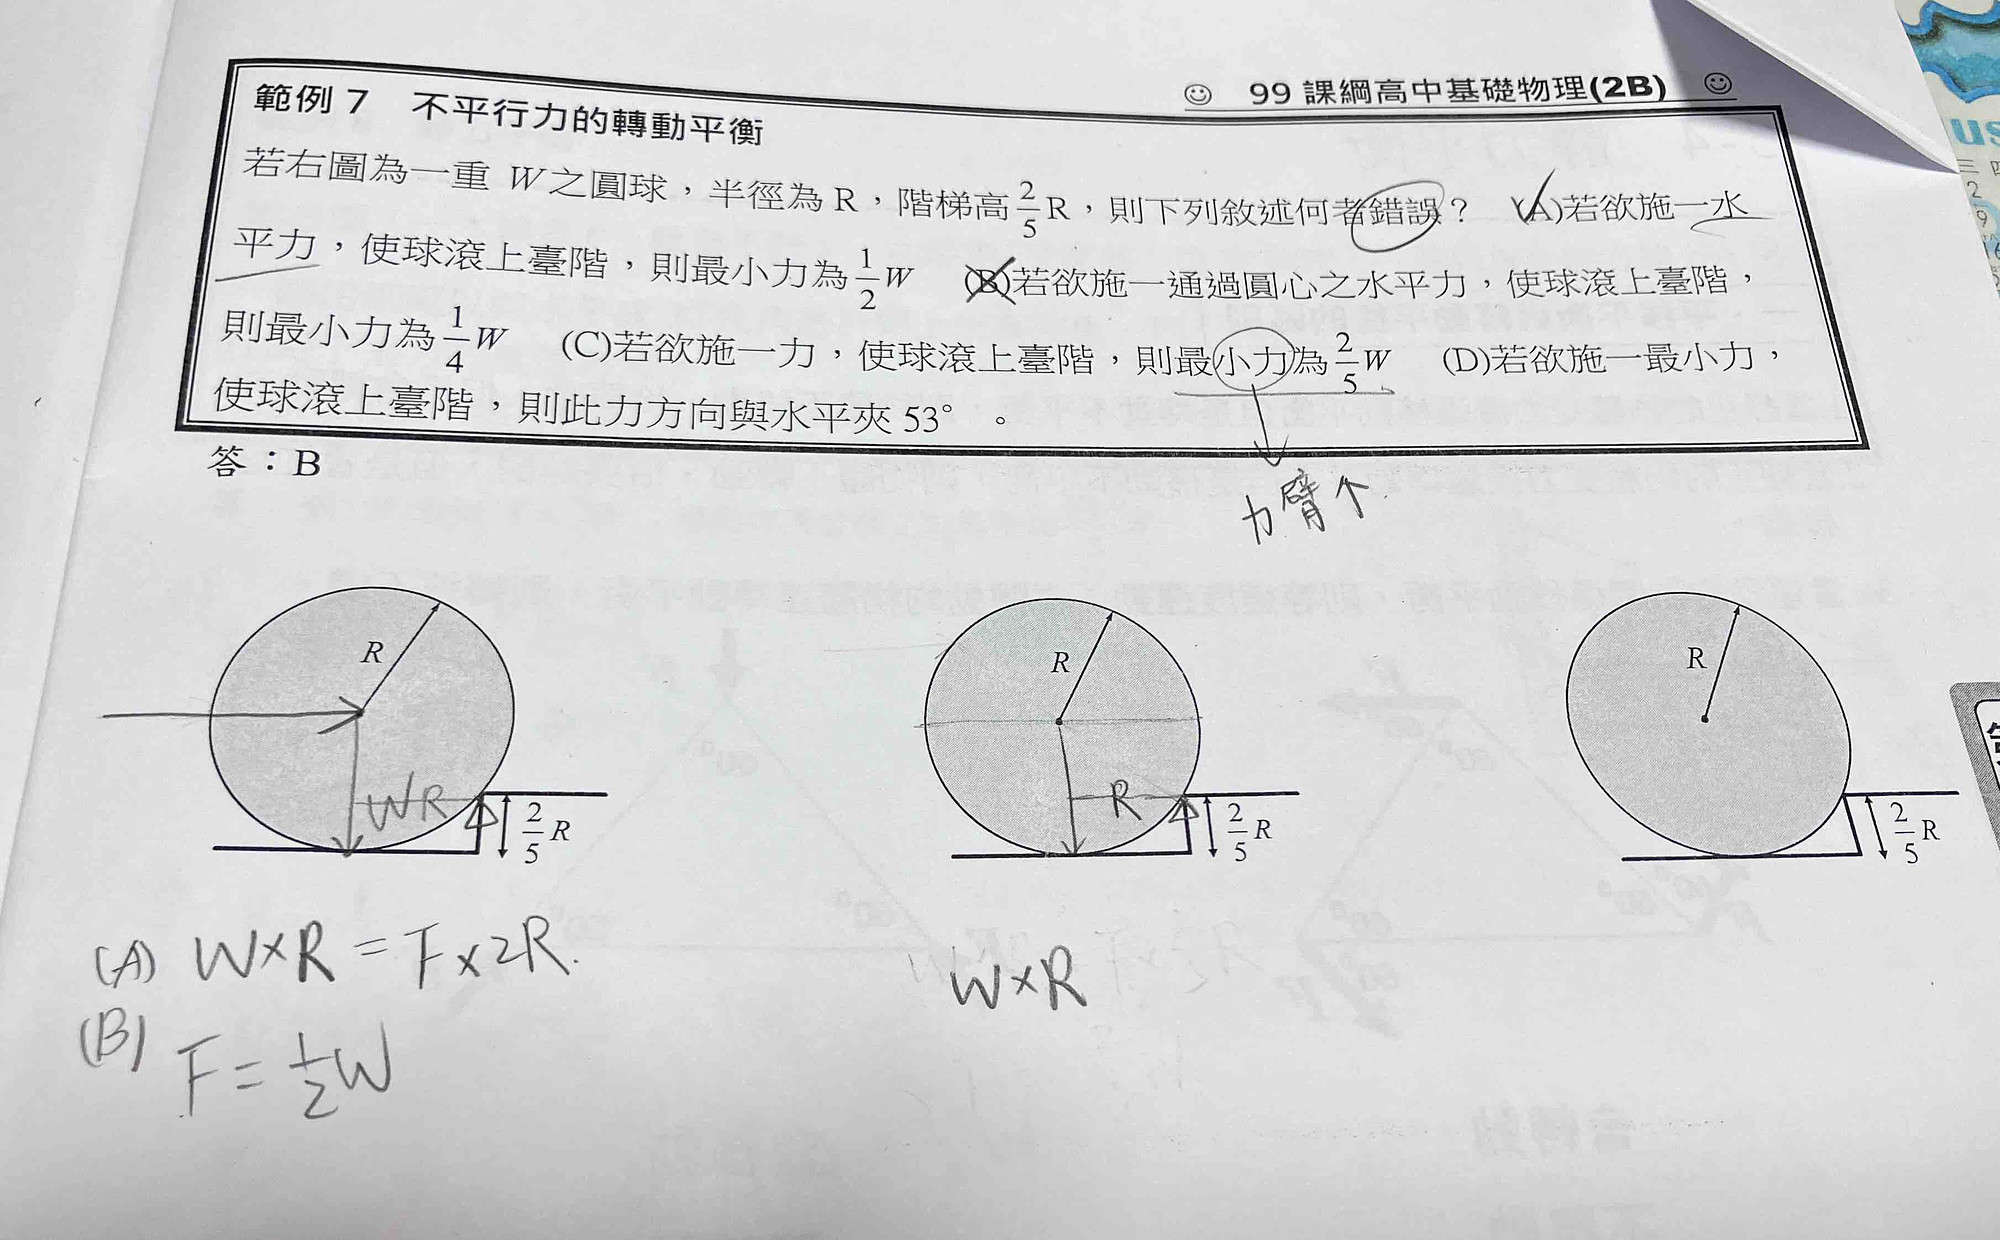 ☺ 99 課綱高中基礎物理(2B) ☺
範例 7 不平行力的轉動平衡
若右圖為一重 W之圓球，半徑為 R，階梯高 2/5 R，則下列敘述何者錯誤？ (A)若欲施一水
平力，使球滾上臺階，則最小力為 1/2 W (B)若欲施一通過圓心之水平力，使球滾上臺階，
則最小力為 1/4 W (C)若欲施一力，使球滾上臺階，則最小力為 2/5 W (D)若欲施一最小力，
使球滾上臺階，則此力方向與水平夾 53°。
答：B
力臂↑
R
WR
2/5 R
R
R
2/5 R
R
2/5 R
(A) W×R = F×2R.
(B) F = 1/2 W
W×R
us
三 四
2
9